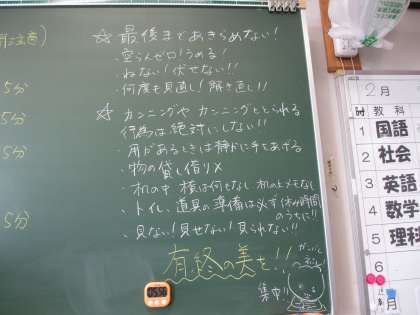 注意)
5分
5分
5分
5分
☆ 最後まであきらめない!
・空らんゼロ! うめる!
・ねない! 伏せない!!
・何度も見直し! 解き直し!!
☆ カンニングや カンニングととられる
行為は絶対にしない!!
・用があるときは静かに手をあげる
・物の貸し借り×
・机の中 横は何もなし 机の上メモなし
・トイレ、道具の準備は必ず休み時間
のうちに!!
・見ない! 見せない! 見られない!!
有終の美を!!
集中!!
05:50
2月
教科
1 国語
2 社会
3 英語
4 数学
5 理科
6
月